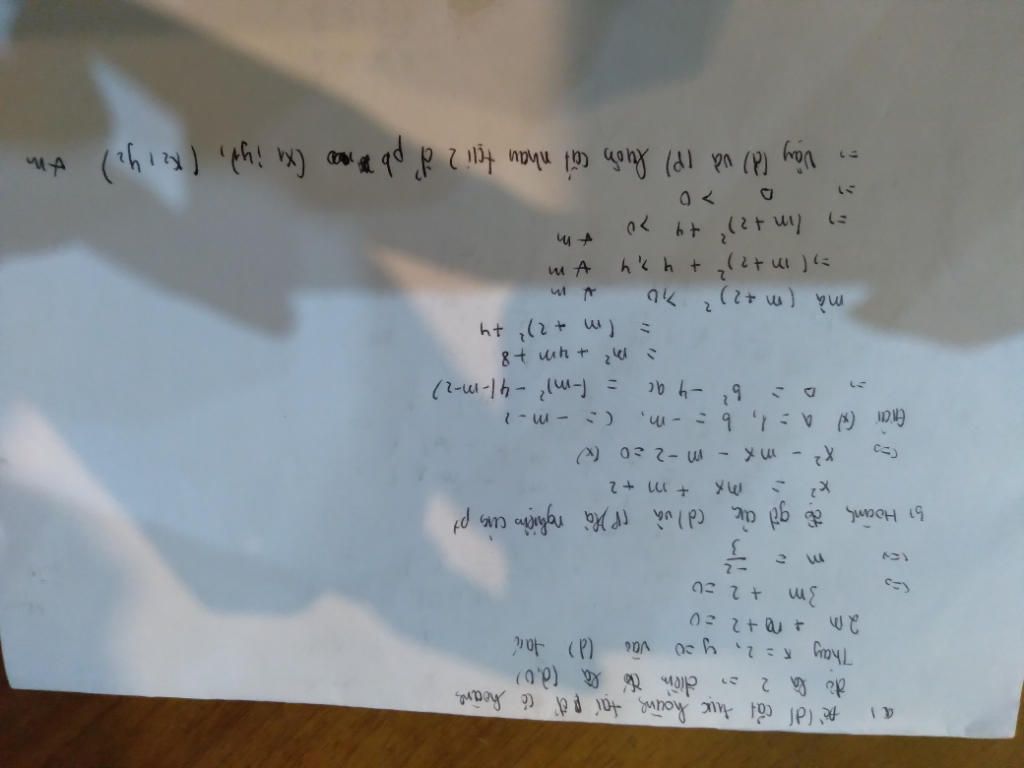 a, Để (d) cắt trục hoành tại đ' có hoành
độ là 2 => điểm đó là (2,0)
Thay x = 2, y = 0 vào (d) ta có
2m + m + 2 = 0
<=> 3m + 2 = 0
<=> m = -2/3
b, Hoành độ gđ của (d) và (P) là nghiệm của pt
x² = mx + m + 2
<=> x² - mx - m - 2 = 0 (*)
(*) a = 1, b = -m, c = -m - 2
=> Δ = b² - 4ac = (-m)² - 4(-m-2)
= m² + 4m + 8
= (m + 2)² + 4
mà (m+2)² ≥ 0 ∀ m
=> (m+2)² + 4 ≥ 4 ∀ m
=> (m+2)² + 4 > 0 ∀ m
=> Δ > 0
=> Vậy (d) và (P) luôn cắt nhau tại 2 đ' pb (x1; y1), (x2; y2) ∀ m